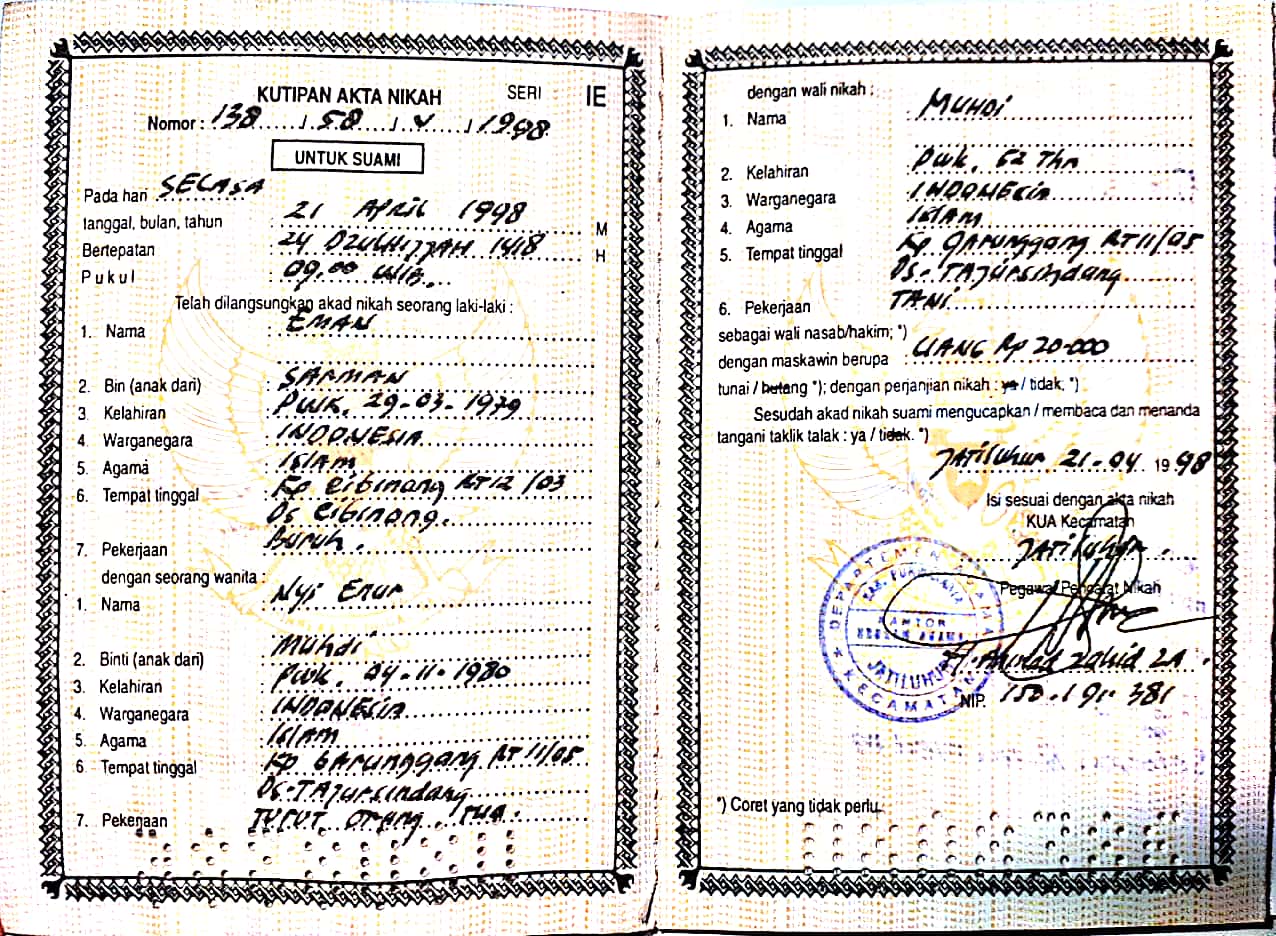 KUTIPAN AKTA NIKAH SERI IE
Nomor : 138 / 58 / 4 / 1998
UNTUK SUAMI
Pada hari SELASA
tanggal, bulan, tahun : 21 APRIL 1998 M
Bertepatan : 24 DZULHIJJAH 1418 H
Pukul : 09.00 WIB.
Telah dilangsungkan akad nikah seorang laki-laki :
1. Nama : EMAN
2. Bin (anak dari) : SARMAN
3. Kelahiran : PWK, 29-03-1979
4. Warganegara : INDONESIA
5. Agama : ISLAM
6. Tempat tinggal : Kp Cibinang RT 12/03
Ds Cibinong.
7. Pekerjaan : Buruh.
dengan seorang wanita :
1. Nama : Nyi Enur
2. Binti (anak dari) : Muhdi
3. Kelahiran : PWK, 04-11-1980
4. Warganegara : INDONESIA
5. Agama : ISLAM
6. Tempat tinggal : Kp Garunggang RT 11/05
Ds. TAjursindang
7. Pekerjaan : TURUT orang TUA.
dengan wali nikah :
1. Nama : MUHDI
2. Kelahiran : PWK, 62 Thn
3. Warganegara : INDONESIA
4. Agama : ISLAM
5. Tempat tinggal : Kp Garunggang RT 11/05
Ds. TAjursindang
6. Pekerjaan TANI
sebagai wali nasab/hakim; *)
dengan maskawin berupa : UANG Rp 20.000
tunai / hutang *); dengan perjanjian nikah : ya / tidak; *)
Sesudah akad nikah suami mengucapkan / membaca dan menanda
tangani taklik talak : ya / tidak. *)
JATILUHUR 21-04 1998
Isi sesuai dengan akta nikah
KUA Kecamatan
JATILUHUR.
Pegawai Pencatat Nikah
DEPARTEMEN AGAMA
KAB. PURWAKARTA
KANTOR
URUSAN AGAMA
JATILUHUR
KECAMATAN
H. Ahmad Zahid ZA.
NIP. 150.191.381
*) Coret yang tidak perlu.